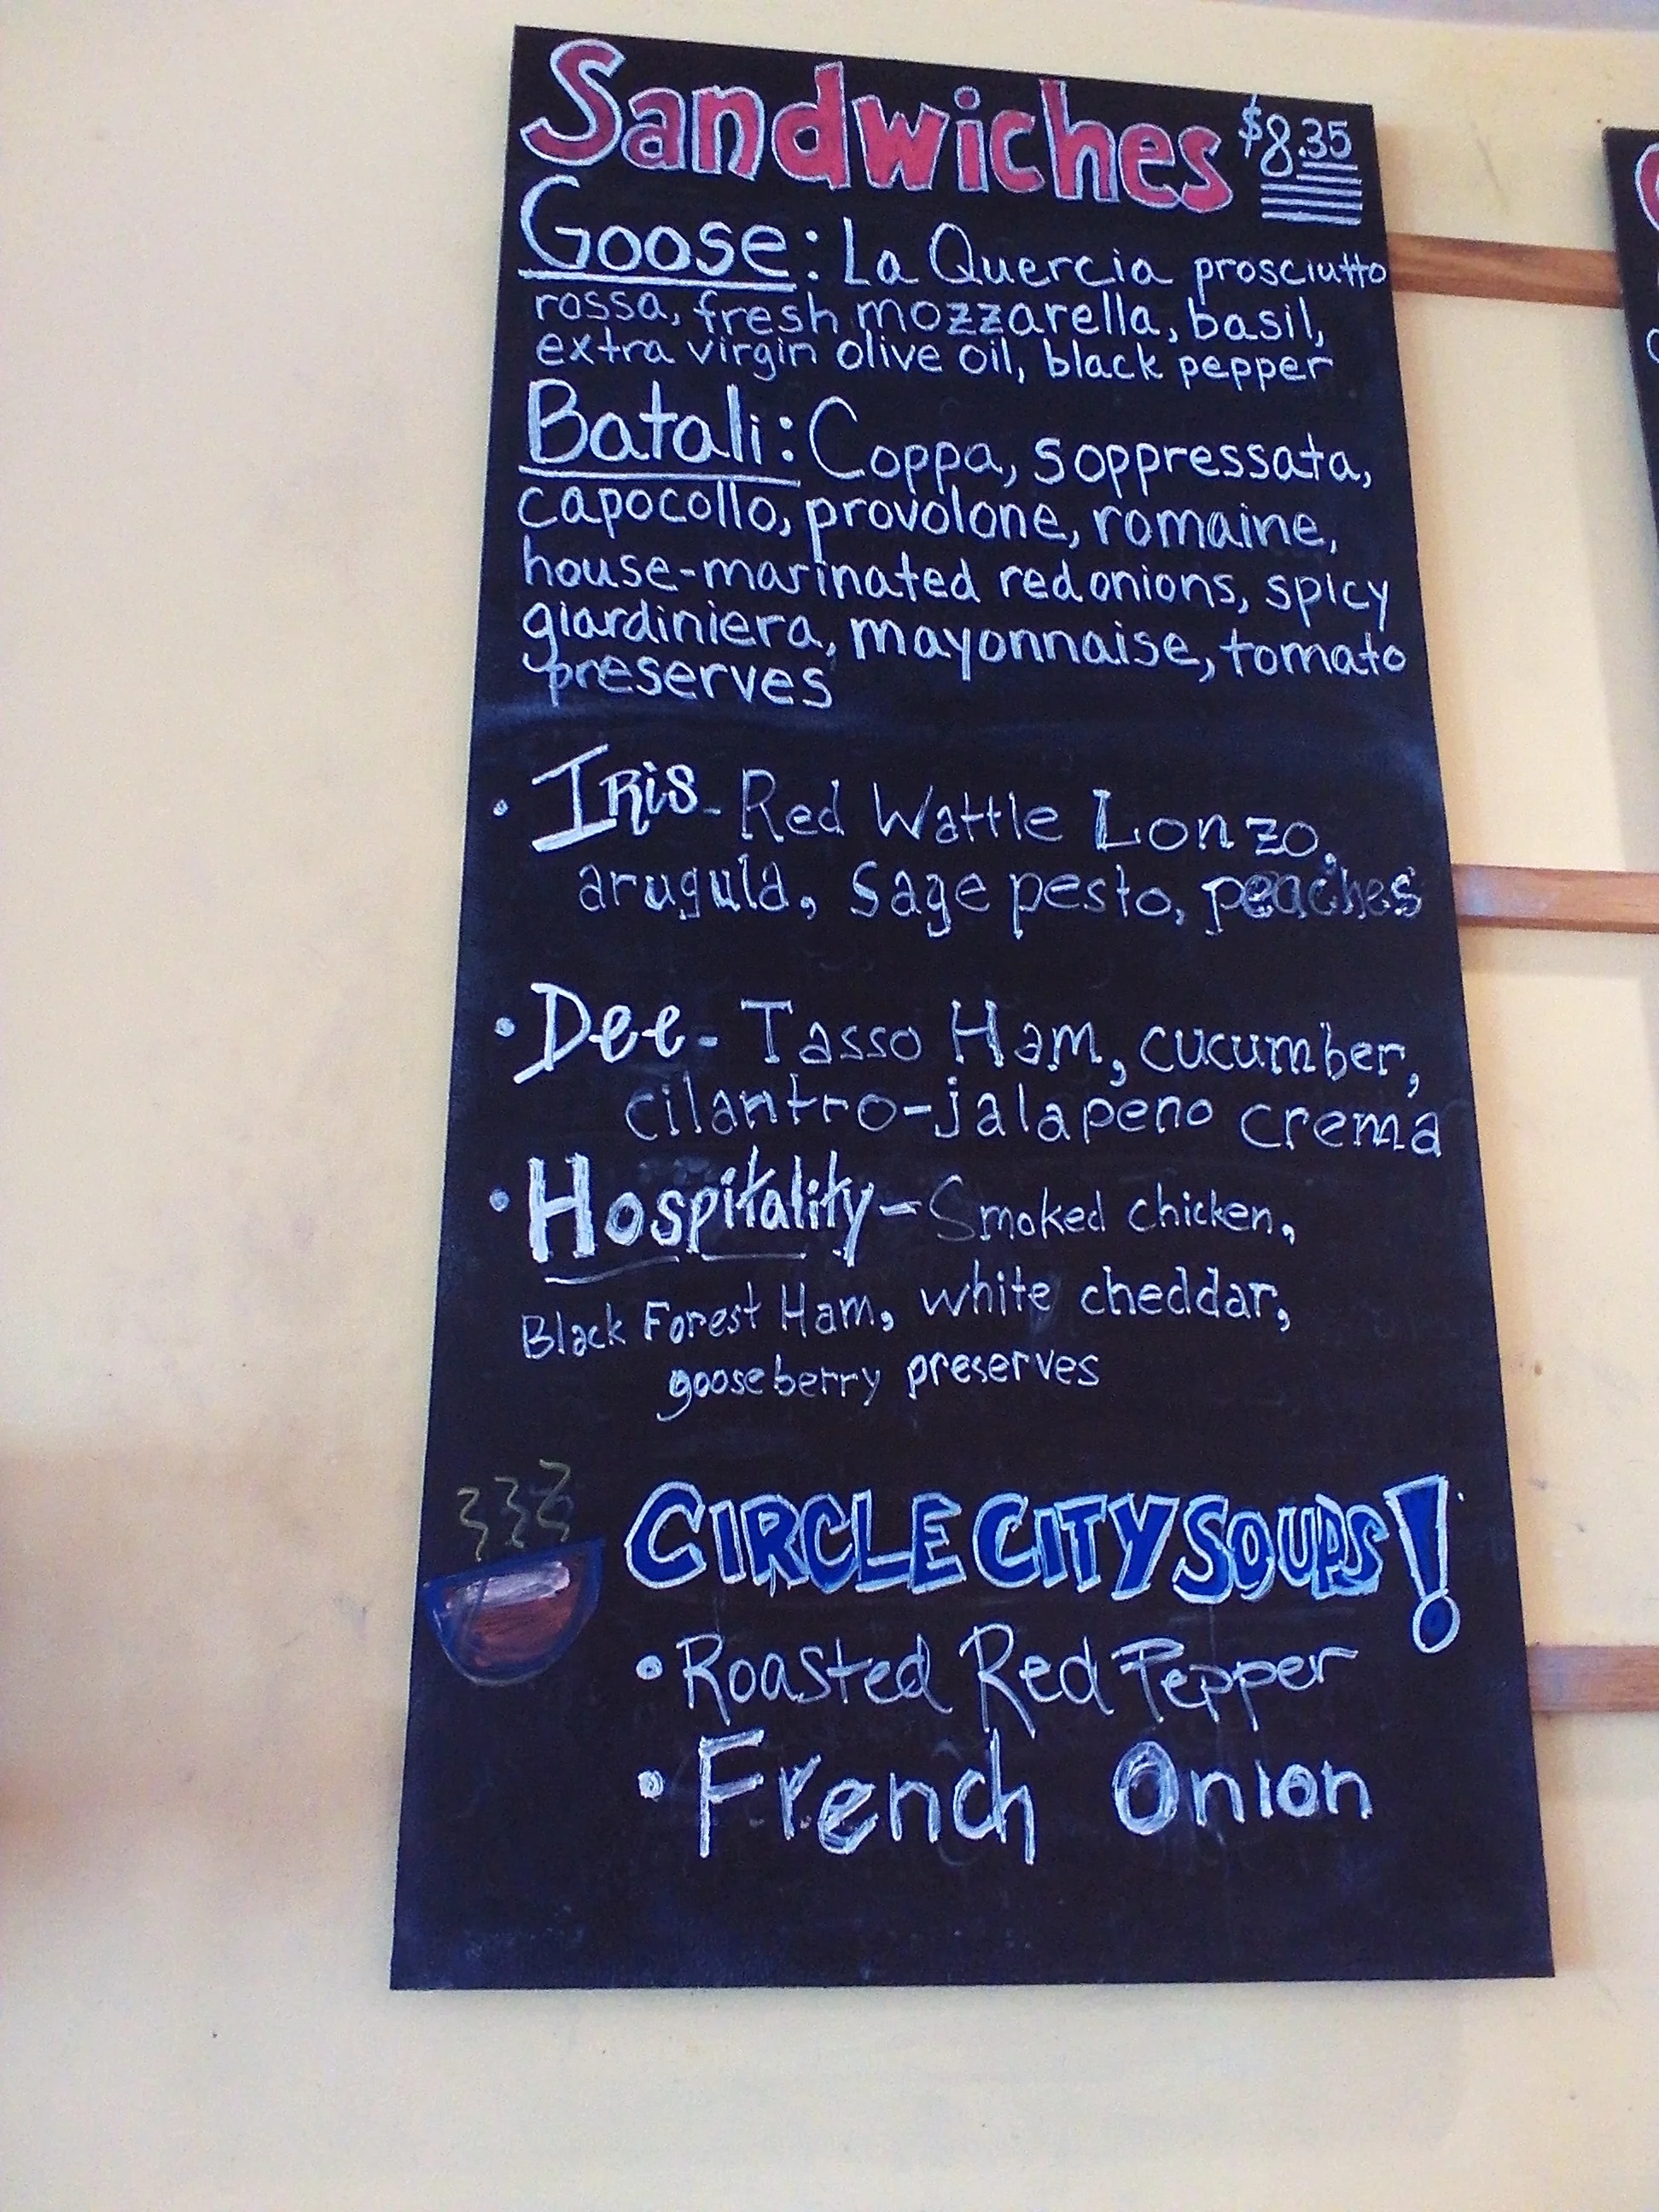 Sandwiches $8.35
Goose: La Quercia prosciutto
rossa, fresh mozzarella, basil,
extra virgin olive oil, black pepper
Batali: Coppa, soppressata,
capocollo, provolone, romaine,
house-marinated red onions, spicy
giardiniera, mayonnaise, tomato
preserves
• Iris - Red Wattle Lonzo,
arugula, Sage pesto, peaches
• Dee - Tasso Ham, cucumber,
cilantro-jalapeno crema
• Hospitality - Smoked chicken,
Black Forest Ham, white cheddar,
gooseberry preserves
CIRCLE CITY SOUPS!
• Roasted Red Pepper
• French Onion